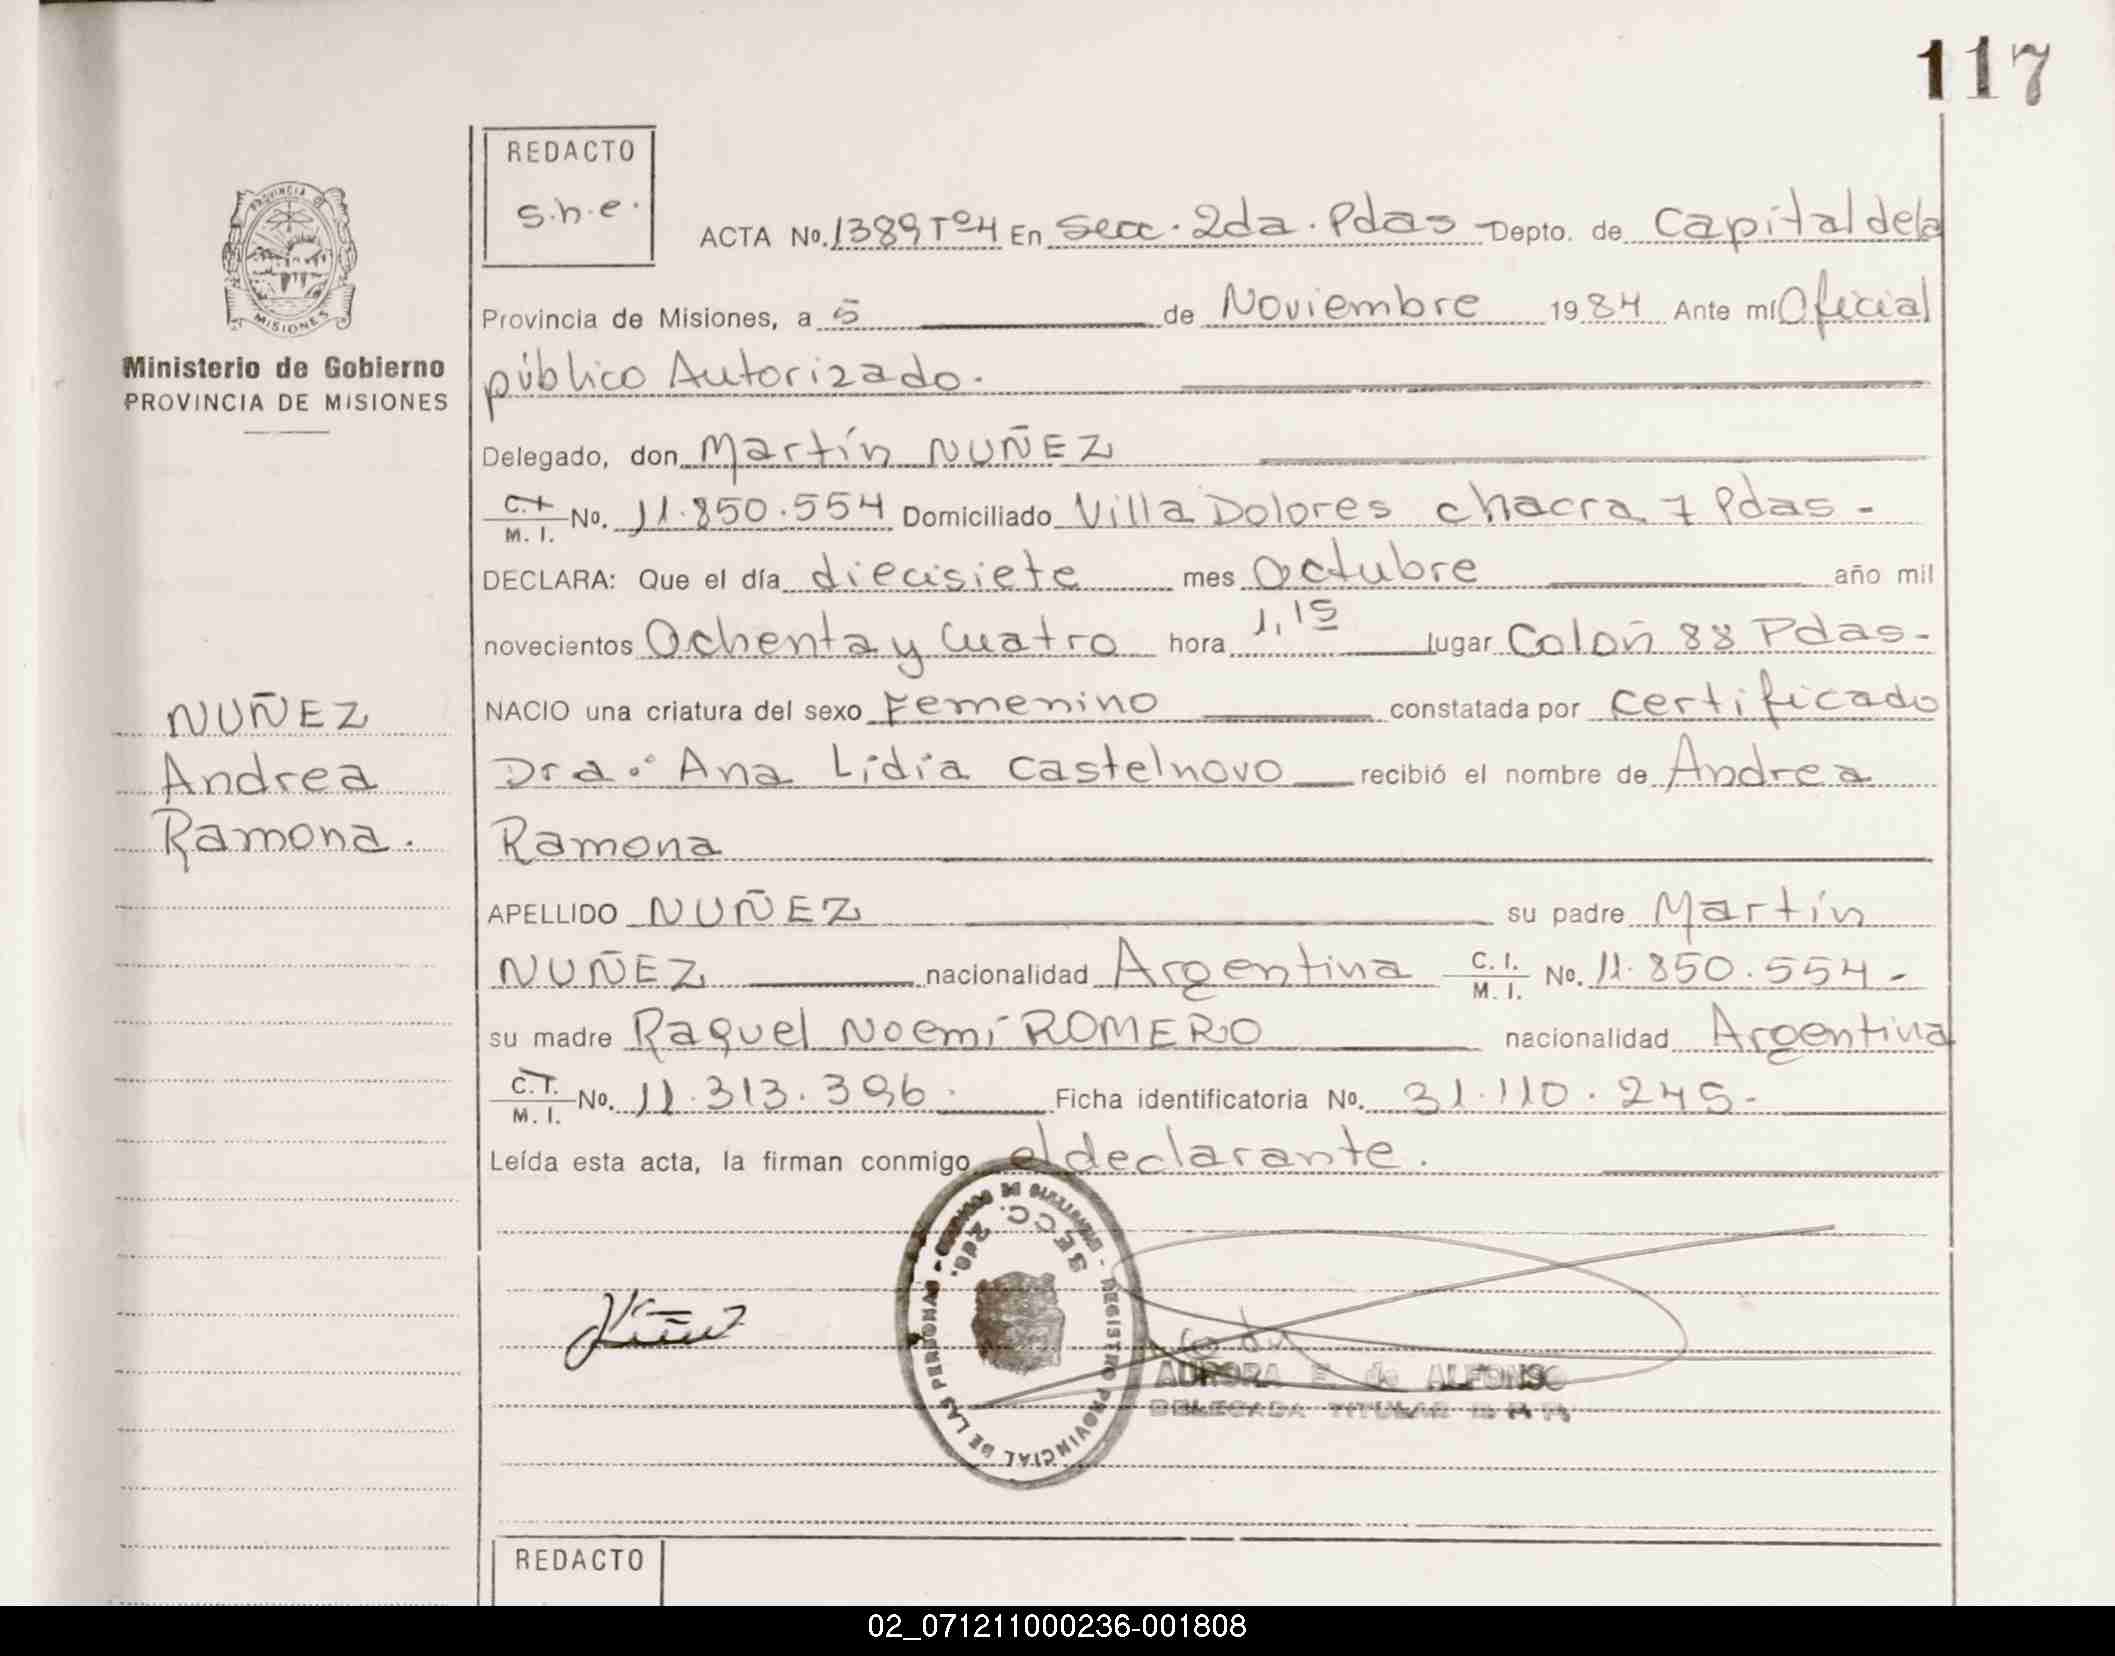 117
REDACTO
s.h.e.
PROVINCIA DE
MISIONES
ACTA No. 1389 Tº4 En Secc. 2da. Pdas - Depto. de Capital de la
Provincia de Misiones, a 5 de Noviembre 1984 Ante mí Oficial
Ministerio de Gobierno
PROVINCIA DE MISIONES
público Autorizado.
Delegado, don Martín NUÑEZ
C.I. M. I. No. 11.850.554 Domiciliado Villa Dolores chacra 7 Pdas -
DECLARA: Que el día diecisiete mes Octubre año mil
novecientos Ochenta y Cuatro hora 1,15 lugar Colón 88 Pdas-
NUÑEZ
Andrea
Ramona.
NACIO una criatura del sexo Femenino constatada por certificado
Dra. Ana Lidia Castelnovo recibió el nombre de Andrea
Ramona
APELLIDO NUÑEZ su padre Martín
NUÑEZ nacionalidad Argentina C. I. M. I. No. 11.850.554 -
su madre Raquel Noemí ROMERO nacionalidad Argentina
C.I. M. I. No. 11.313.396. Ficha identificatoria No. 31.110.245-
Leída esta acta, la firman conmigo el declarante.
SECC. 2da.
REGISTRO PROVINCIAL DE LAS PERSONAS - MINISTERIO DE GOBIERNO -
AURORA E. de ALFONSO
DELEGADA TITULAR
REDACTO
02_071211000236-001808